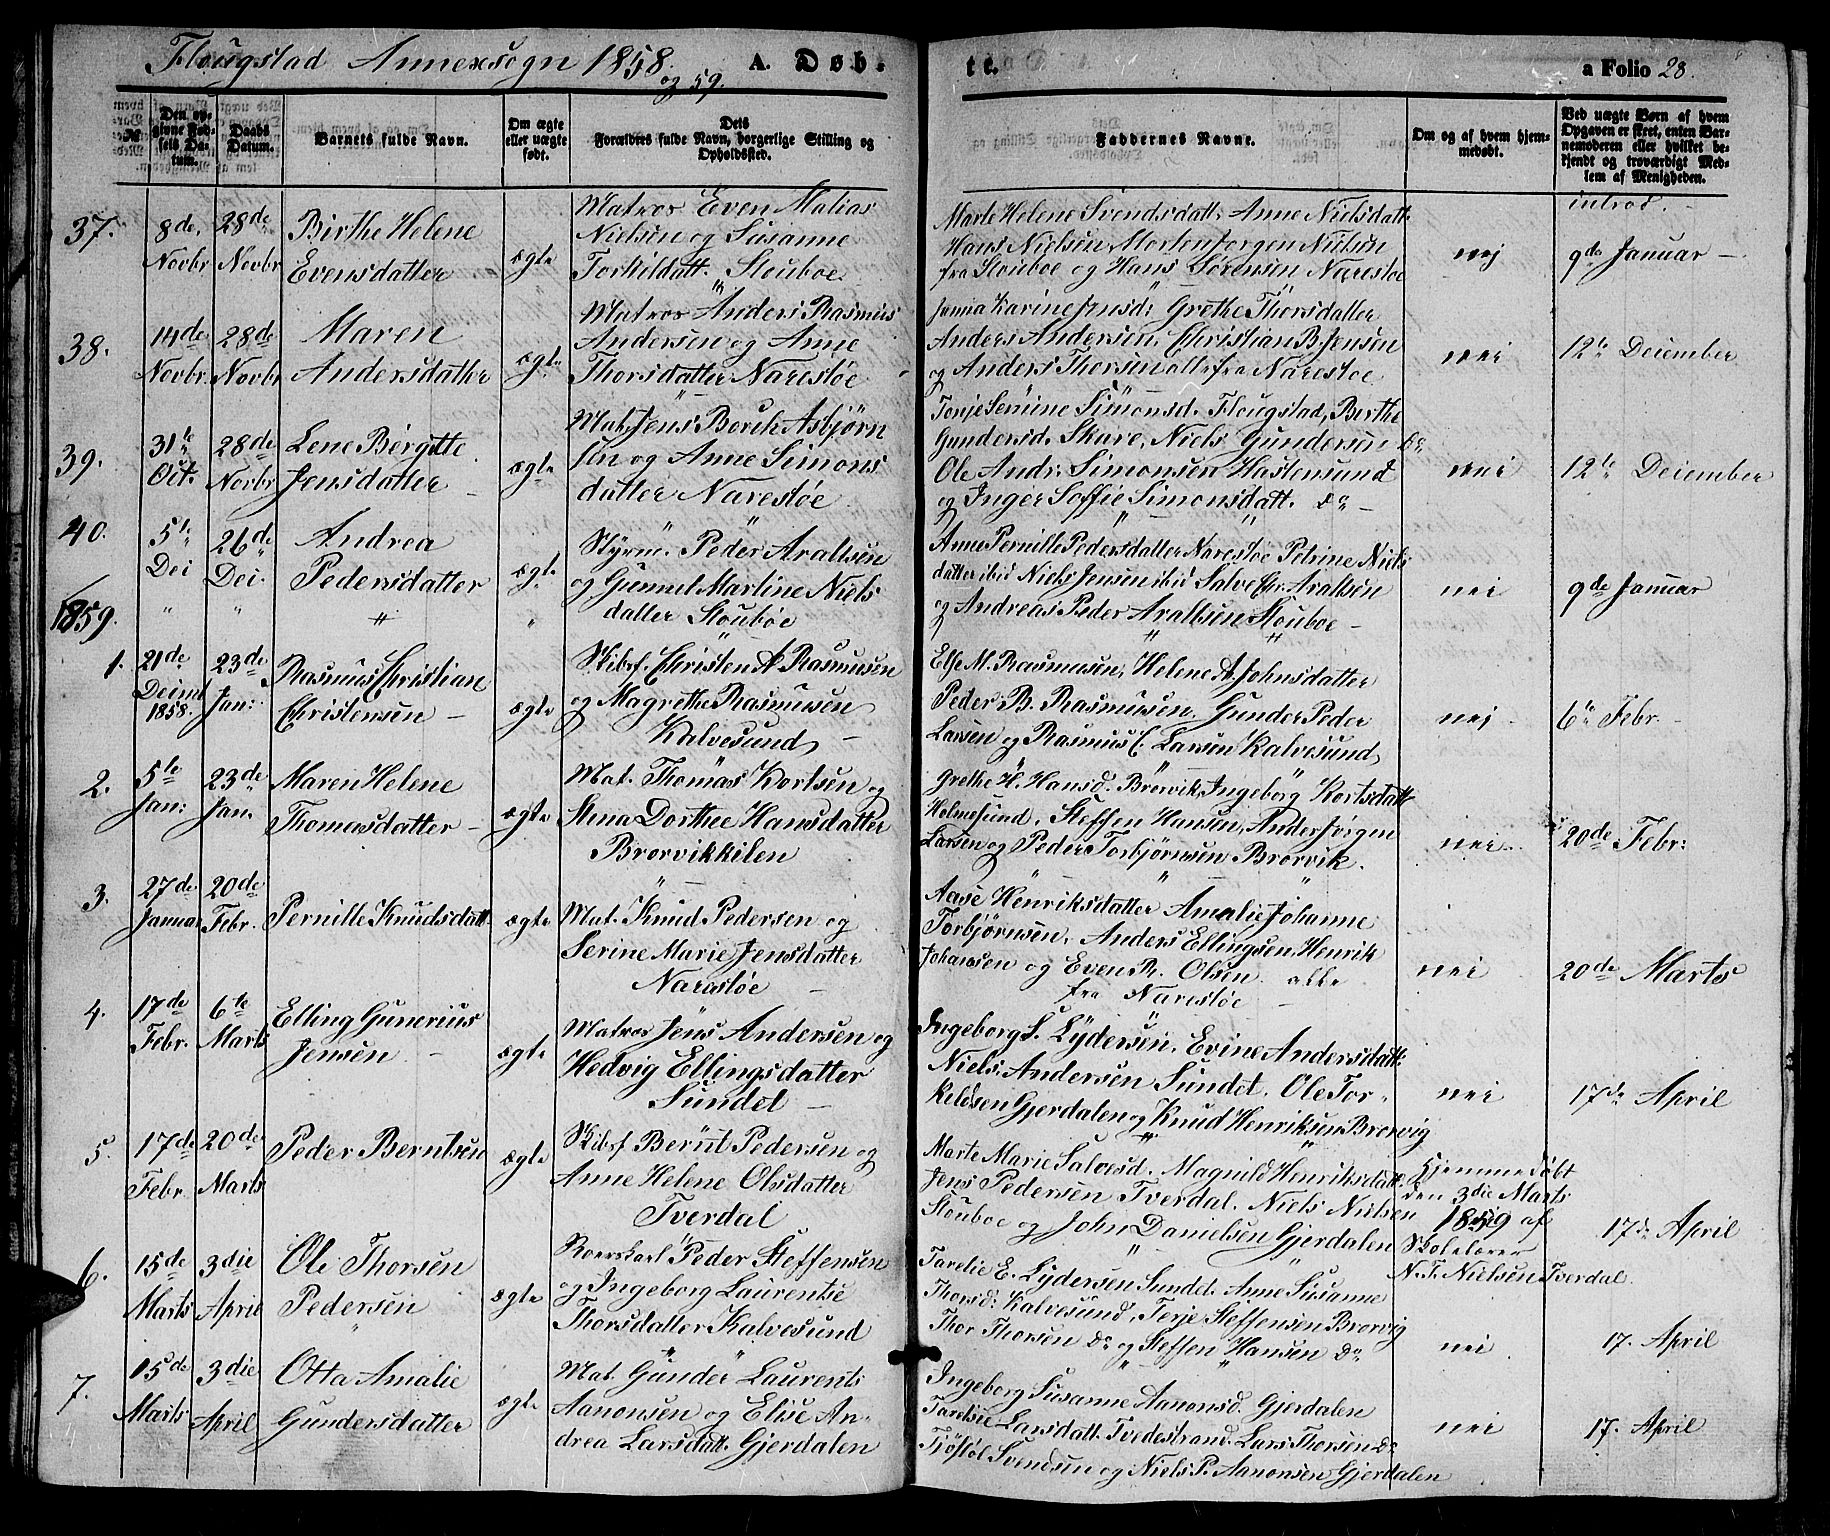 Flougstad Annexsogn 1858 og 59.
A. Døb-
te.
a Folio 28.
No
Den opgivne Fødsels Datum.
Daabs Datum.
Barnets fulde Navn.
Om ægte eller uægte født.
Dets Forældres fulde Navn, borgerlige Stilling og Opholdssted.
Faddernes Navne.
Om og af hvem hjemmedøbt.
Ved uægte Børn af hvem Opgaven er skeet, enten Barnemoderen eller hvilket bekjendt og troværdigt Medlem af Menigheden.
introd.
37.
8de Novbr
28de Novbr
Birthe Helene
Evensdatter
ægte
Matros Even Matias
Nielsen og Susanne
Torkildatt. Stouboe
Marte Helene Svendsdatt. Anne Nielsdatt.
Hans Nielsen Morten Jørgen Nielsen
fra Stouboe og Hans Sørensen Narestøe
nej
9de Januar
38.
14de Novbr.
28de Novbr
Maren
Andersdatter
ægte
Matros Anders Rasmus
Andersen og Anne
Thorsdatter Narestøe
Janna Karine Jensd: Grethe Thorsdatter
Anders Andersen, Christian B. Jensen
og Anders Thorsen alle fra Narestøe
nei
12te December
39.
31te Oct.
28de Novbr
Lene Birgitte
Jensdatter
ægte
Mat. Jens Berik Asbjørn
sen og Anne Simons
datter Narestøe
Tonje Semine Simonsd. Flougstad, Birthe
Gundersd. Skare, Niels Gundersen Do
Ole Andr: Simonsen Hastensund
og Inger Soffie Simonsdatt. Do
nei
12te December
40.
5te Dec
26de Dec.
Andrea
Pedersdatter
ægte
Styrm. Peder Araltsen
og Gunnel Martine Niels
datter Stouboe
Anne Pernille Pedersdatter Narestøe Petrine Niels
datter ibid Niels Jensen ibid Salve Chr. Araltsen
og Andreas Peder Araltsen Stouboe
nei
9de Januar
1859.
1.
21de Decmb 1858.
23de Jan:
Rasmus Christian
Christensen
ægte
Skibsf. Christen A Rasmusen
og Magrethe Rasmusen
Kalvesund
Else M. Rasmusen, Helene A Johnsdatter
Peder B. Rasmusen, Gunder Peder
Larsen og Rasmus C. Larsen Kalvesund
nej
6te Febr.
2.
5te Jan:
23de Jan.
Maren Helene
Thomasdatter
ægte
Mat. Thomas Kortsen og
Stena Dorthee Hansdatter
Brorvikkilen
Grethe H. Hansd. Brorvik, Ingeborg Kortsdatt
Holmesund, Steffen Hansen, Ander Jørgen
Larsen og Peder Torbjørnsen Brorvik.
nei
20de Febr:
3.
27de Januar
20de Febr.
Pernille Knudsdatt
ægte
Mat. Knud Pedersen og
Serine Marie Jensdatter
Narestøe
Aase Henriksdatter Amalie Johanne
Torbjørnsen, Anders Ellingsen, Henrik
Johansen og Even R. Olsen alle
fra Narestøe
nei
20de Marts
4.
17de Febr.
6te Marts
Elling Gunerius
Jensen
ægte
Matros Jens Andersen og
Hedvig Ellingsdatter
Sundet
Ingeborg S. Lydersen, Evine Andersdatt.
Niels Andersen Sundet, Ole Tor-
keldsen Gjerdalen og Knud Henriksen Brorvig
nei
17de April
5.
17de Febr
20de Marts
Peder Berntsen
ægte
Skibsf Bernt Pedersen og
Anne Helene Olsdatter
Tverdal
Marte Marie Salvesd. Magnild Henriksdatt.
Jens Pedersen Tverdal, Niels Nielsen
Stouboe og John Danielsen Gjerdalen
Hjemmedøbt
den 3die Marts
1859 af
Skolelærer
N. T. Nielsen Tverdal.
17de April
6.
15de Marts
3die April
Ole Thorsen
Pedersen
ægte
Roerskarl Peder Steffensen
og Ingeborg Laurentse
Thorsdatter Kalvesund
Tarelie E. Lydersen Sundet, Anne Susanne
Thorsd: Kalvesund, Terje Steffensen Brorvig
Thor Thorsen Do og Steffen Hansen Do
nei
17. April
7.
15de Marts
3die April
Otta Amalie
Gundersdatter
ægte
Mat. Gunder Laurents
Aanonsen og Elise An-
drea Larsdatt. Gjerdalen
Ingeborg Susanne Aanonsd. Gjerdalen
Tarelsie Larsdatt. Tvedestrand, Lars Thorsen Do
Tjøstøl Svendsen og Niels P. Aanonsen Gjerdalen
nei
17. April